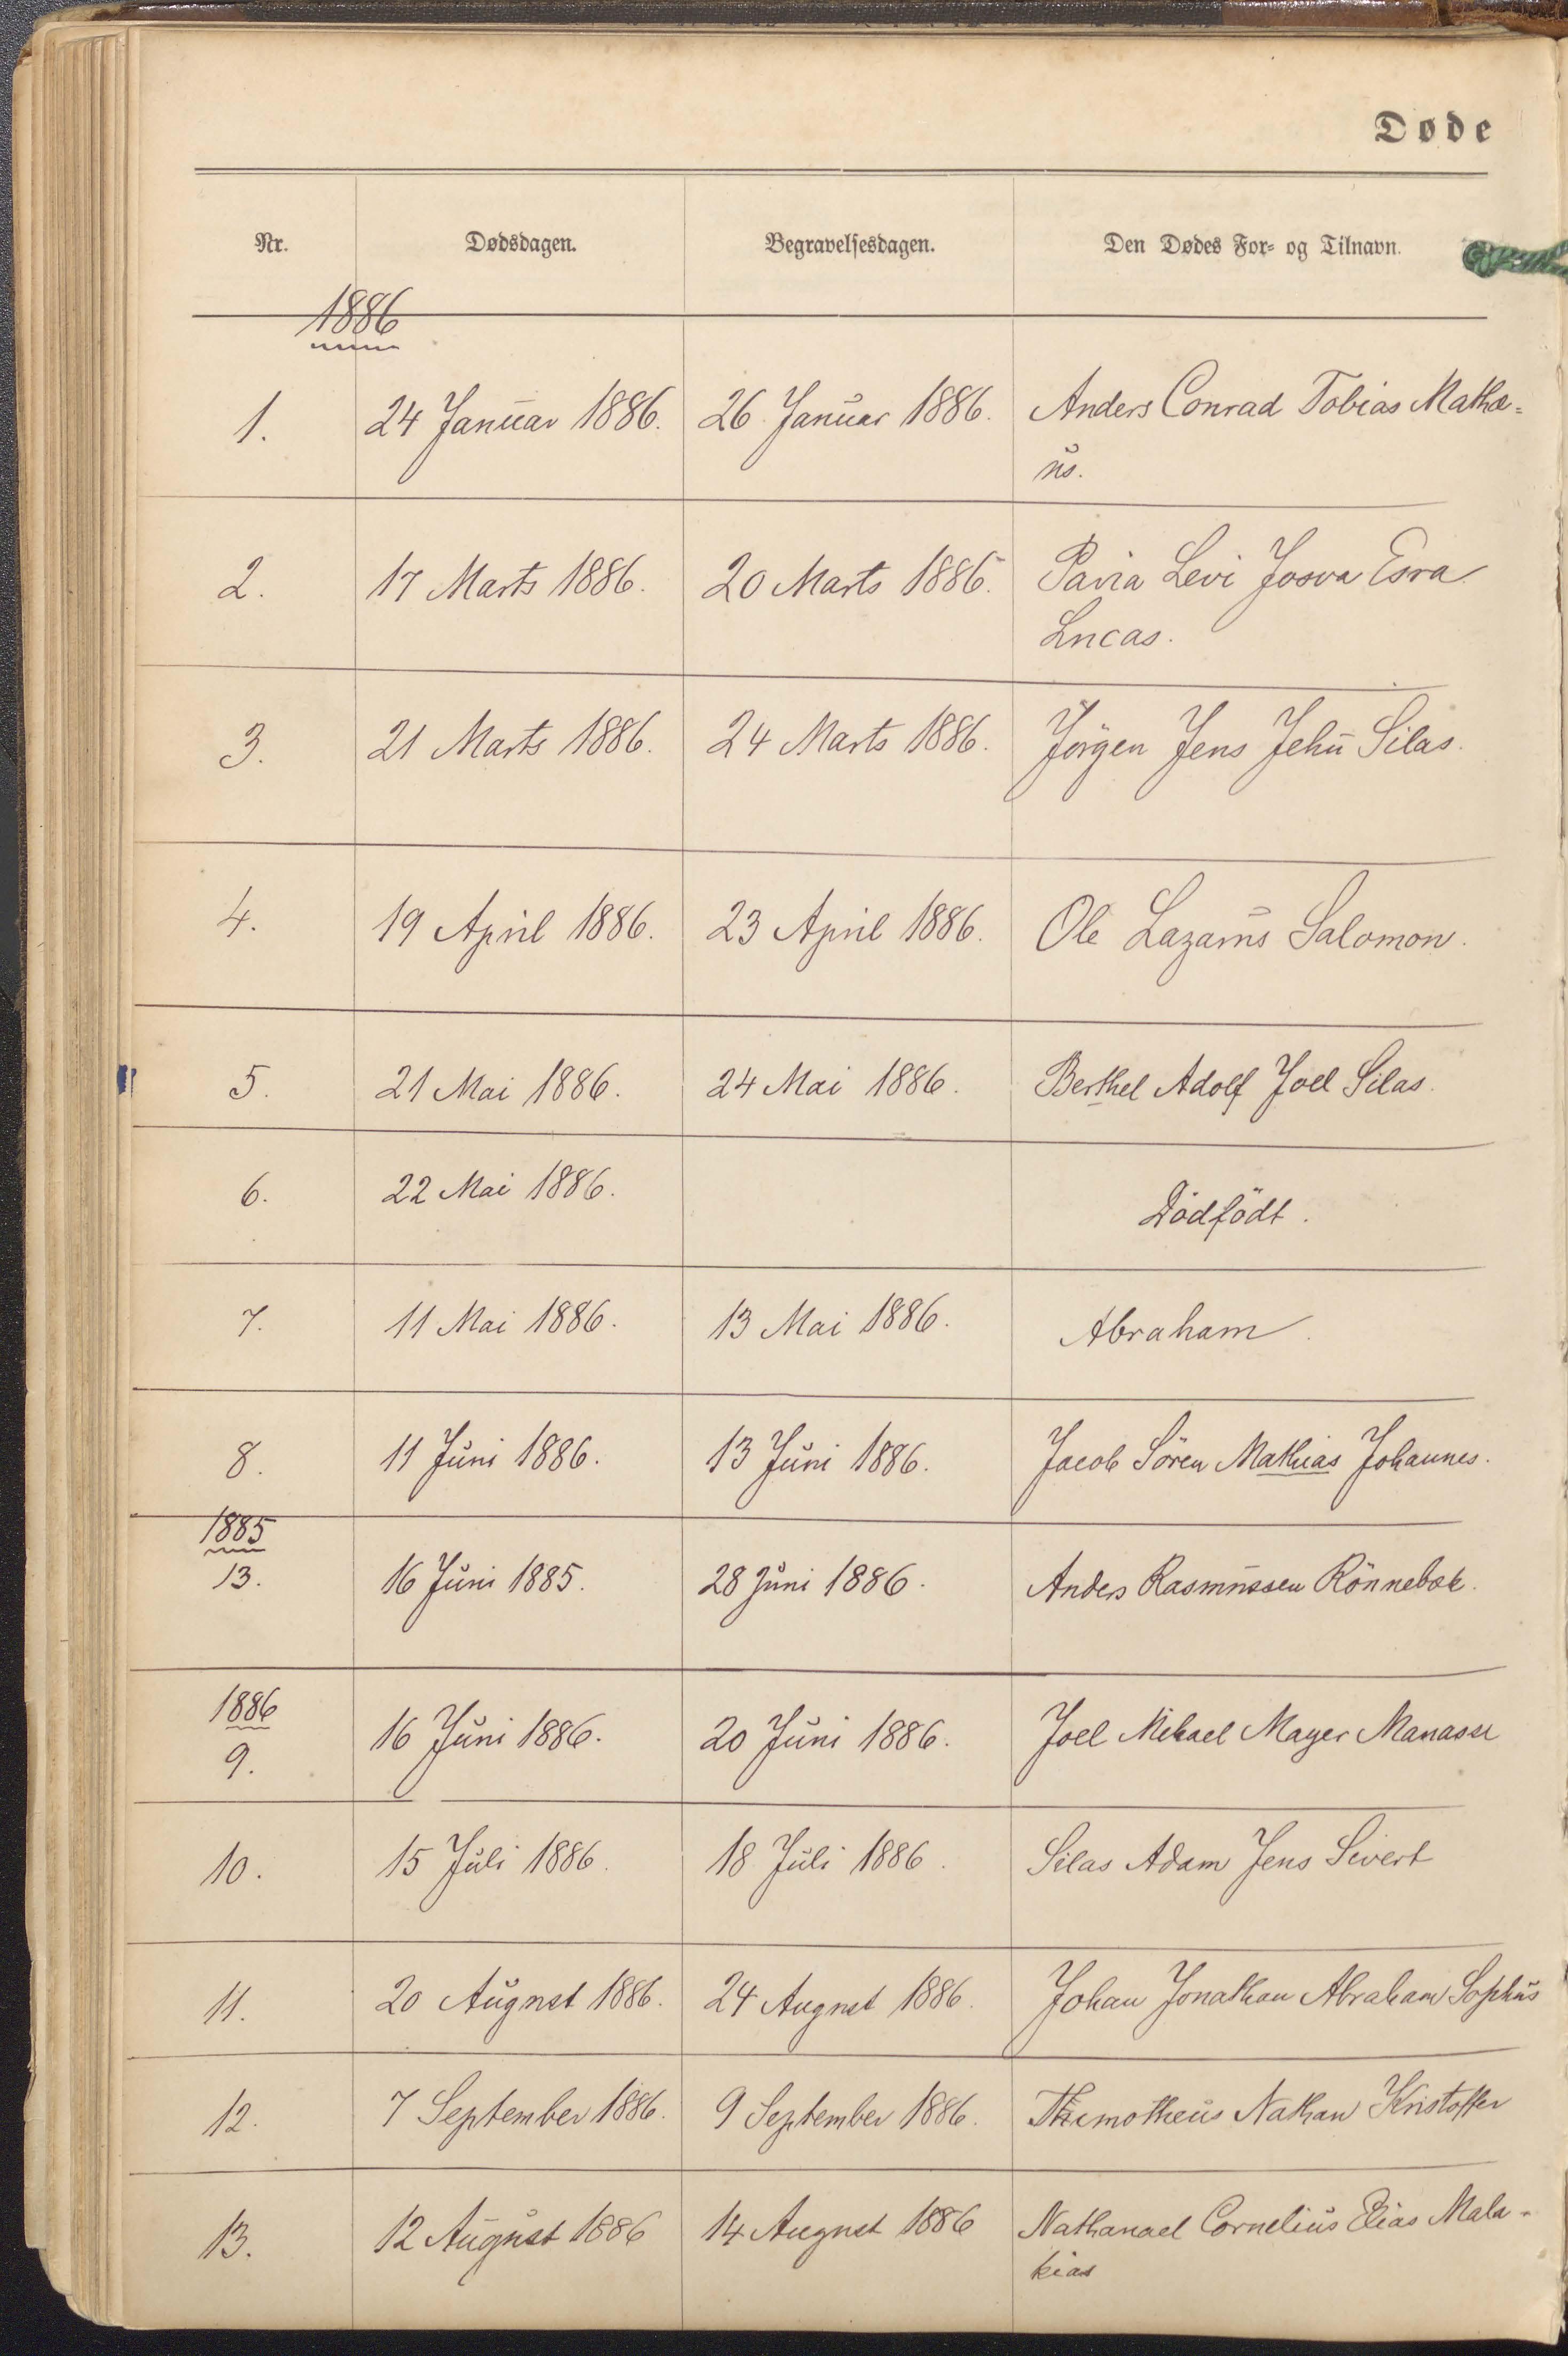 Døde
Nr. Dødsdagen. Begravelsesdagen. Den Dødes For- og Tilnavn.
1886
1. 24 Januar 1886. 26 Januar 1886. Anders Conrad Tobias Mathæ=
us.
2. 17 Marts 1886. 20 Marts 1886. Pavia Levi Josva Esra
Lucas.
3. 21 Marts 1886. 24 Marts 1886. Jörgen Jens Jehu Silas.
4. 19 April 1886. 23 April 1886. Ole Lazarus Salomon.
5. 21 Mai 1886. 24 Mai 1886. Berthel Adolf Joel Silas.
6. 22 Mai 1886. Dödfödt.
7. 11 Mai 1886. 13 Mai 1886. Abraham.
8. 11 Juni 1886. 13 Juni 1886. Jacob Sören Mathias Johannes.
1885
13. 16 Juni 1885. 28 Juni 1886. Anders Rasmussen Rönnebæk.
1886
9. 16 Juni 1886. 20 Juni 1886. Joel Mikael Mayer Manasse
10. 15 Juli 1886. 18 Juli 1886. Silas Adam Jens Sivert
11. 20 August 1886. 24 August 1886. Johan Jonathan Abraham Sophus
12. 7 September 1886. 9 September 1886. Thimotheus Nathan Kristoffer
13. 12 August 1886 14 August 1886 Nathanael Cornelius Elias Mala-
kias